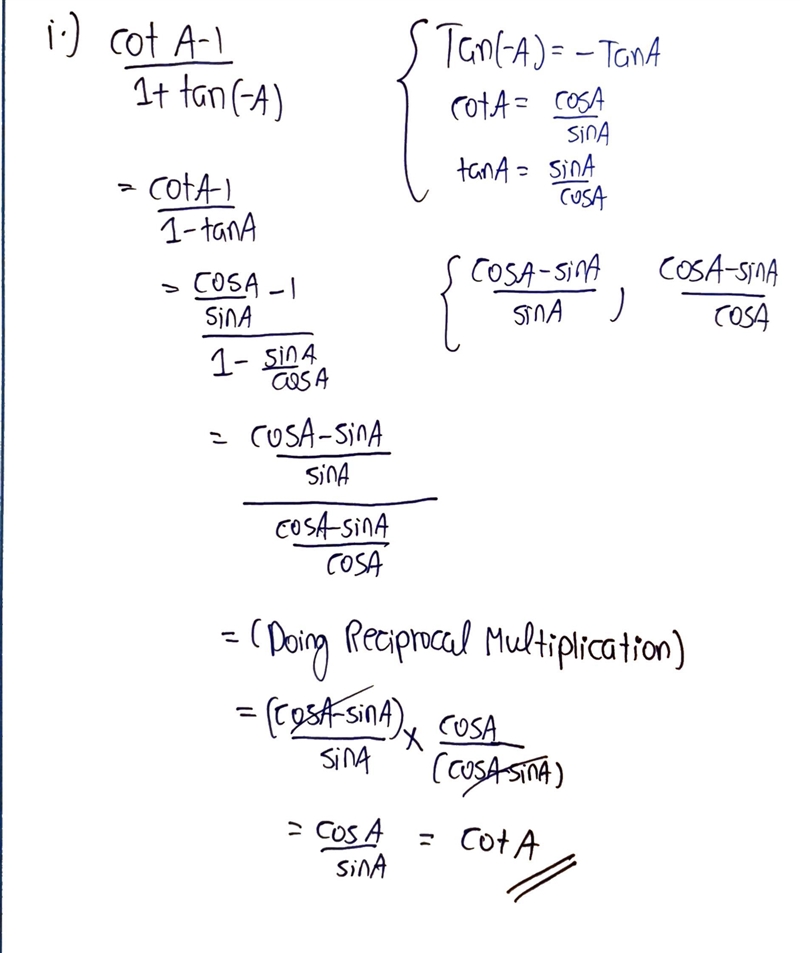 i.) cot A-1 / 1+ tan(-A)
{ Tan(-A) = - TanA
cotA = cosA / sinA
tanA = sinA / cosA
= cotA-1 / 1-tanA
= cosA / sinA -1 / 1- sinA / cosA
{ cosA-sinA / sinA , cosA-sinA / cosA
= cosA-sinA / sinA / cosA-sinA / cosA
= (Doing Reciprocal Multiplication)
= (cosA-sinA) / sinA × cosA / (cosA-sinA)
= cosA / sinA = cotA